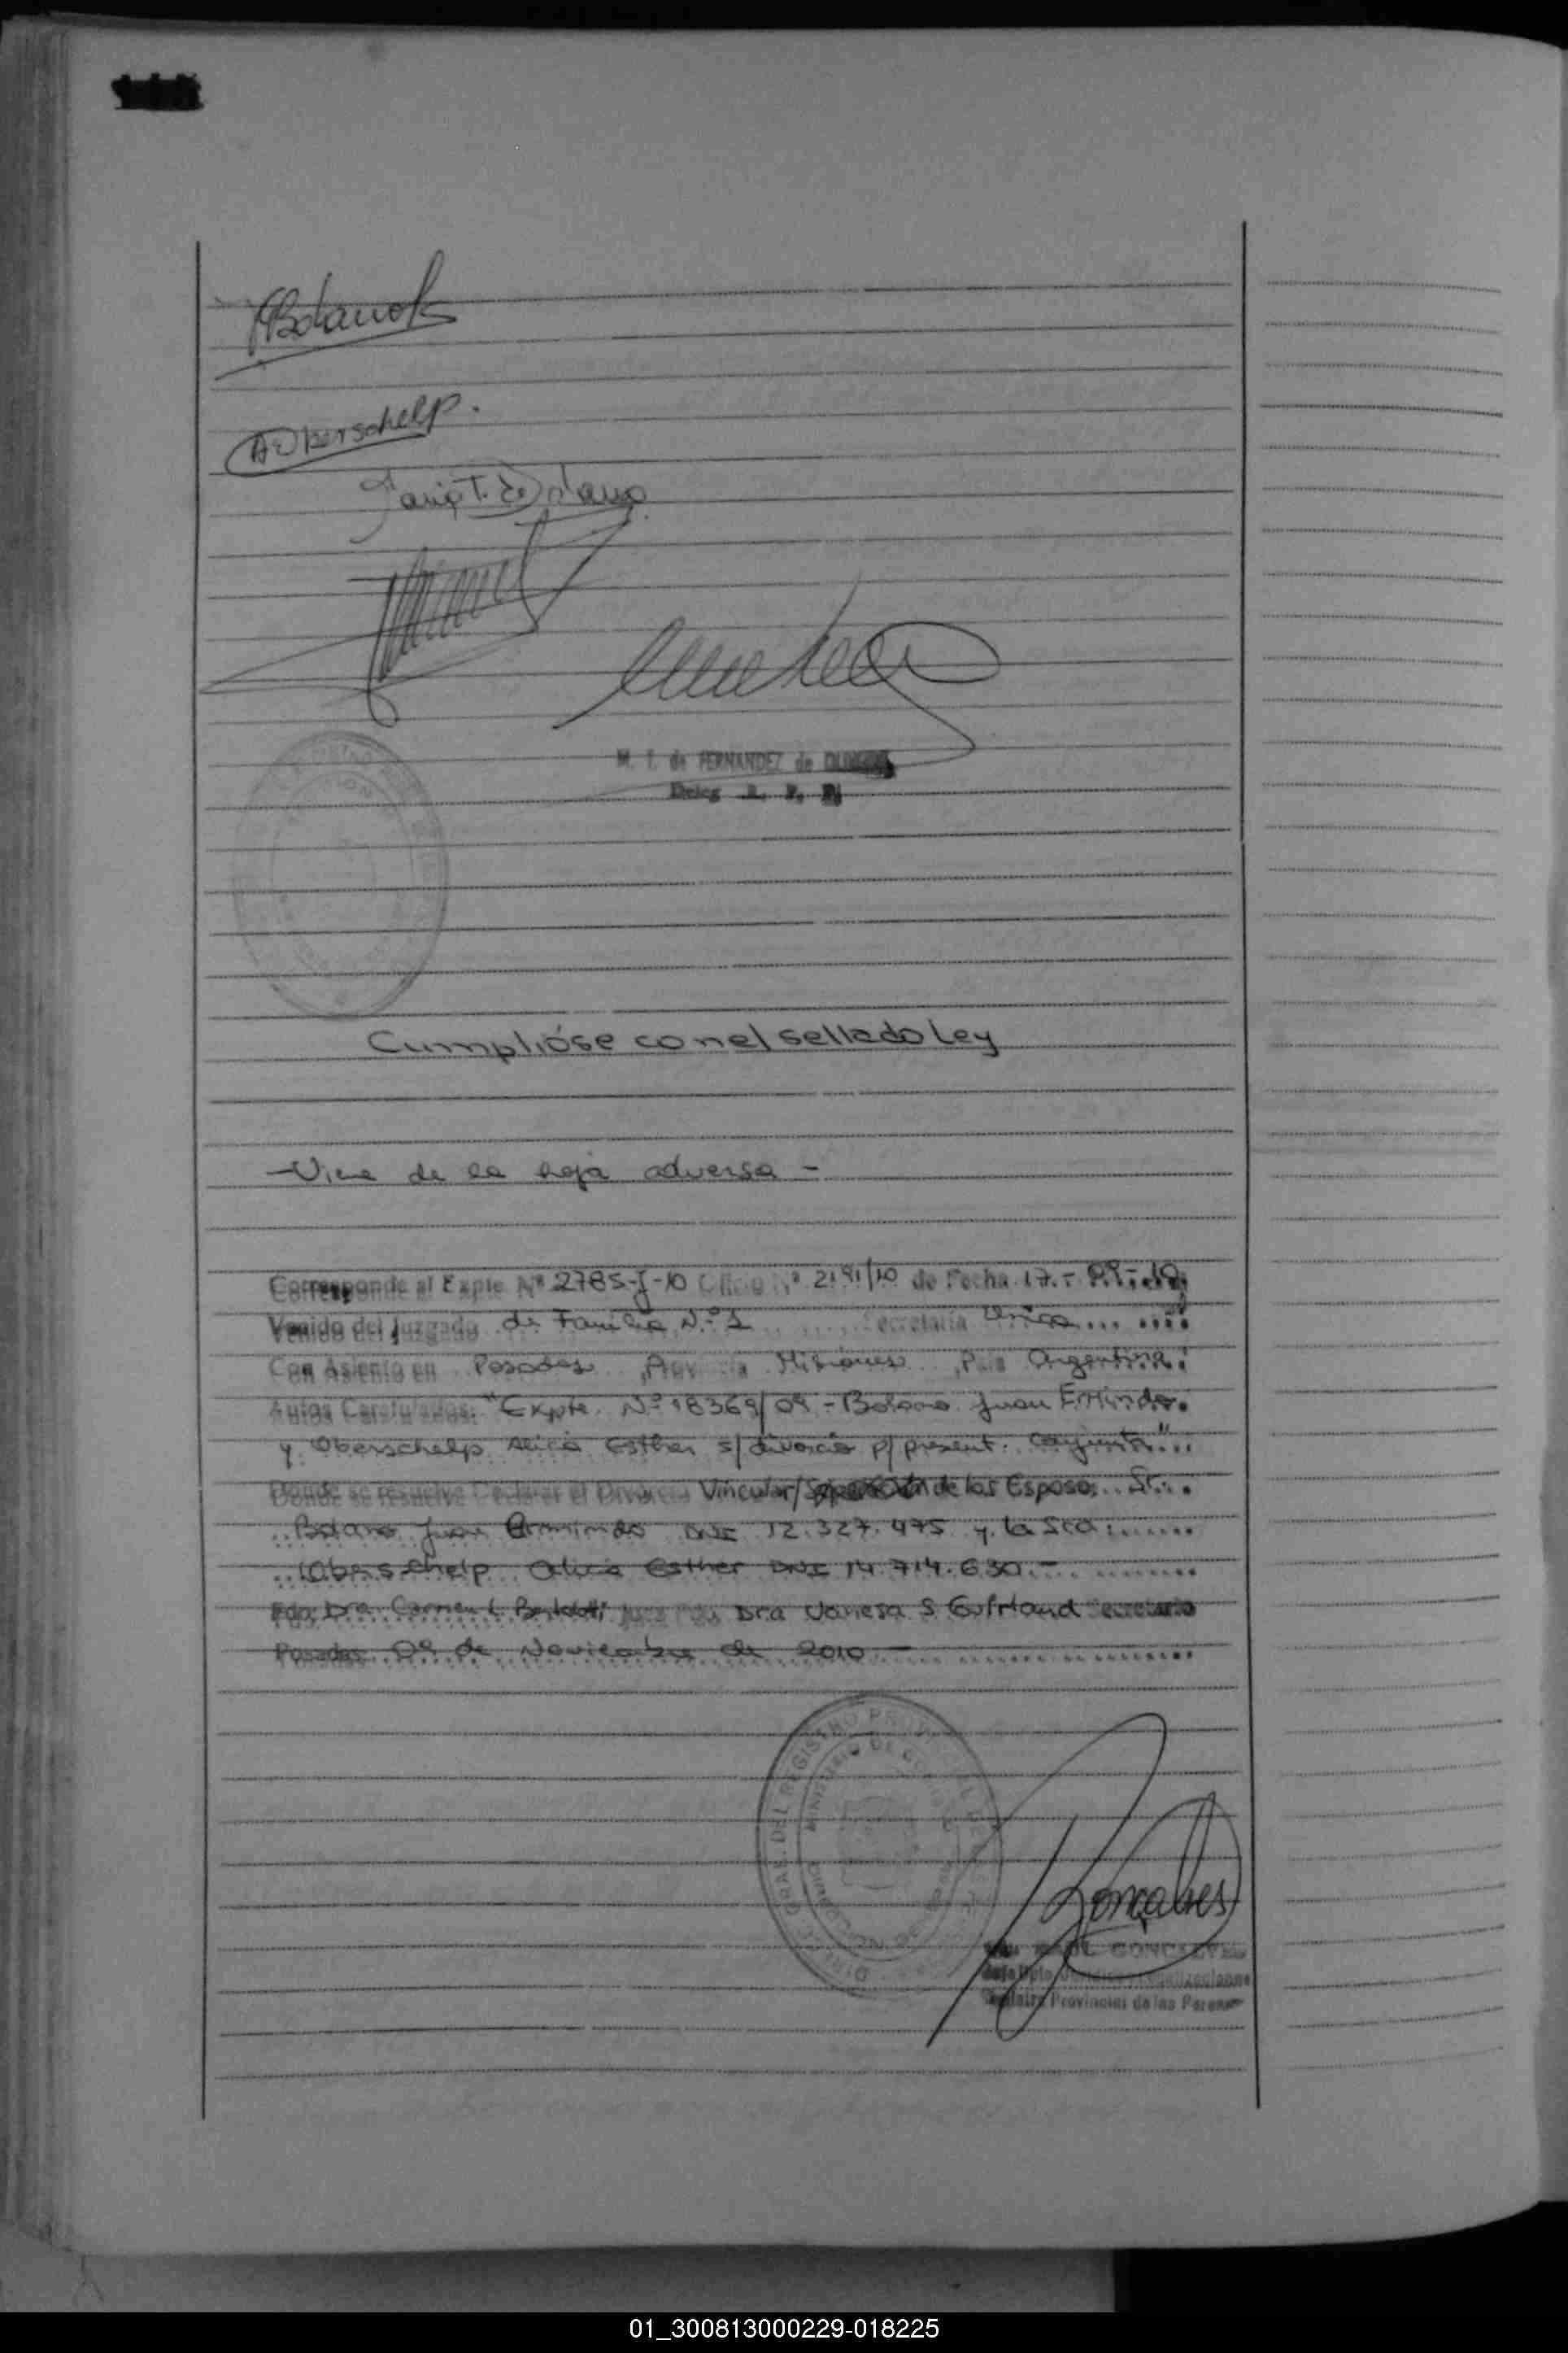 A Oberschelp.
M. I. de FERNANDEZ de
Deleg. R. P. P.
Cumplióse con el sellado Ley
-Viene de la hoja adversa -
Corresponde al Expte Nº 2785-J-10 Oficio Nº 2191/10 de Fecha 17.- 09.- 10.
Venido del Juzgado de Familia N.º 1 Secretaría Única
Con Asiento en Posadas, Provincia Misiones, País Argentina.
Autos Caratulados: "Expte. N.º 18369/09 - Bolano Juan Ermindo.
y Oberschelp Alicia Esther s/divorcio p/present. Conjunta"
Donde se resuelve Declarar el Divorcio Vincular/ de los Esposos Sr.
Bolano Juan Ermindo DNI 12.327.475 y la Sra:
Oberschelp Alicia Esther DNI 14.714.630.-
Fdo: Dra. Carmen Juez Fdo Dra Vanesa S Secretario
Posadas 09 de Noviembre de 2010 -
DIREC. GRAL. DEL REGISTRO PROVINCIAL DE LAS PERSONAS
MINISTERIO DE GOBIERNO
Gonçalves
RAUL GONCALVES
Jefe Dpto. Jurídico Legalizaciones
Registro Provincial de las Personas
01_300813000229-018225